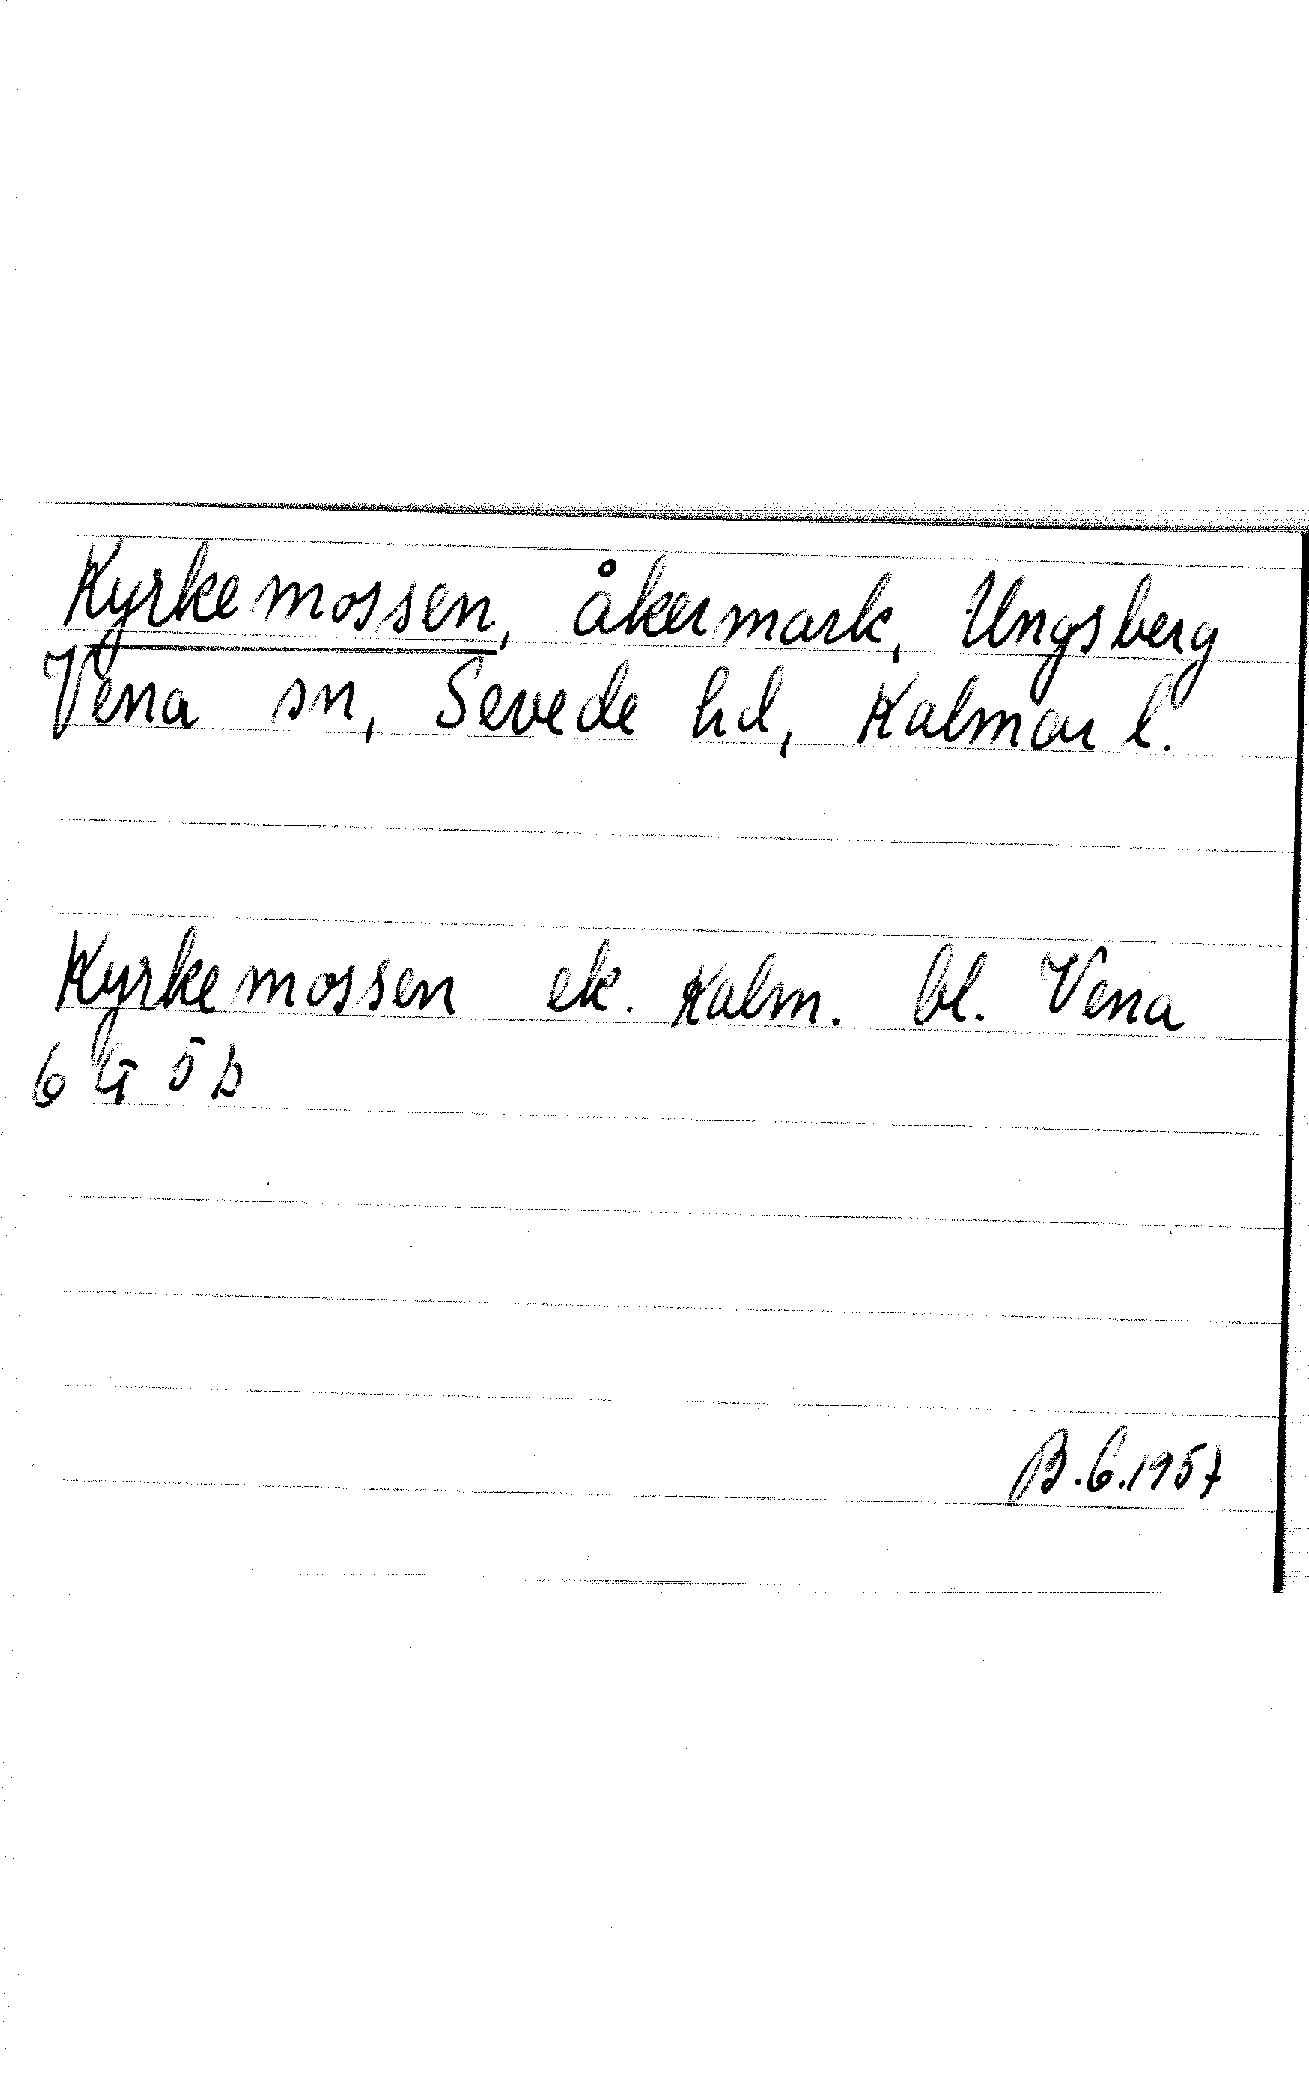 Kyrkemossen, åkermark, Ungsberg
Vena sn, Sevede hd, Kalmar l.
Kyrkemossen ek. Kalm. bl. Vena
6 G 5 b
B.G.1957